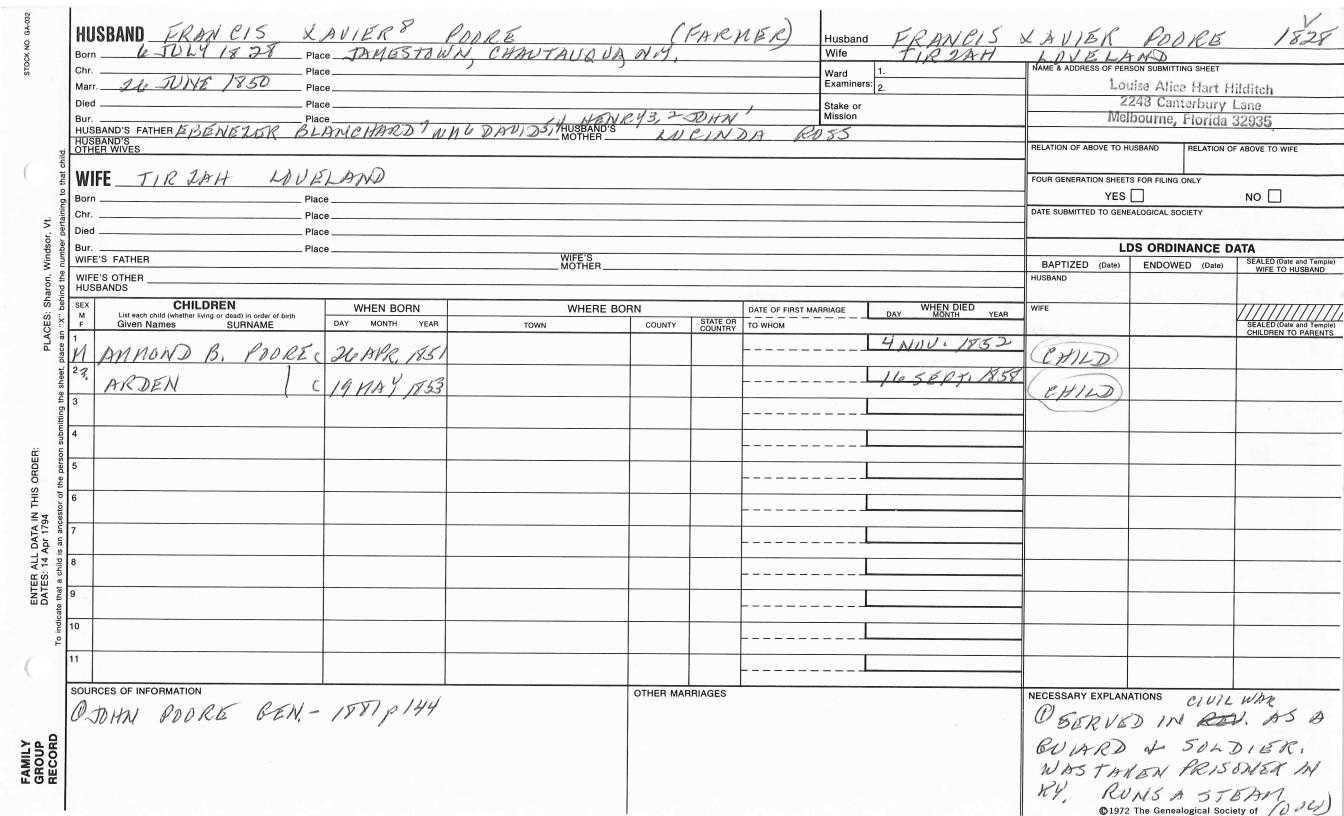 STOCK NO. GA-032
HUSBAND FRANCIS XAVIER⁸ POORE (FARMER)
Born 6 JULY 1828 Place JAMESTOWN, CHAUTAUQUA, N.Y.
Chr. Place
Marr. 26 JUNE 1850 Place
Died Place
Bur. Place
HUSBAND'S FATHER EBENEZER BLANCHARD⁷ DAVID HENRY3, 2 JOHN¹ HUSBAND'S MOTHER LUCINDA ROSS
HUSBAND'S OTHER WIVES
Husband FRANCIS XAVIER POORE 1828
Wife TIRZAH LOVELAND
Ward Examiners: 1.
2.
Stake or Mission
NAME & ADDRESS OF PERSON SUBMITTING SHEET
Louise Alice Hart Hilditch
2243 Canterbury Lane
Melbourne, Florida 32935
RELATION OF ABOVE TO HUSBAND RELATION OF ABOVE TO WIFE
FOUR GENERATION SHEETS FOR FILING ONLY
YES NO
DATE SUBMITTED TO GENEALOGICAL SOCIETY
WIFE TIRZAH LOVELAND
Born Place
Chr. Place
Died Place
Bur. Place
WIFE'S FATHER WIFE'S MOTHER
WIFE'S OTHER HUSBANDS
LDS ORDINANCE DATA
BAPTIZED (Date) ENDOWED (Date) SEALED (Date and Temple) WIFE TO HUSBAND
HUSBAND
WIFE
SEALED (Date and Temple) CHILDREN TO PARENTS
SEX M F
CHILDREN
List each child (whether living or dead) in order of birth
Given Names SURNAME
WHEN BORN
DAY MONTH YEAR
WHERE BORN
TOWN COUNTY STATE OR COUNTRY
DATE OF FIRST MARRIAGE
TO WHOM
WHEN DIED
DAY MONTH YEAR
1 M AMMOND B. POORE C 26 APR. 1851 4 NOV. 1852 CHILD
2 ARDEN C 19 MAY 1853 16 SEPT. 1858 CHILD
3
4
5
6
7
8
9
10
11
SOURCES OF INFORMATION
① JOHN POORE GEN. - 1881 p 144
OTHER MARRIAGES
NECESSARY EXPLANATIONS
CIVIL WAR
① SERVED IN REV. AS A
GUIARD & SOLDIER.
WAS TAKEN PRISONER IN
KY. RUNS A STEAM
©1972 The Genealogical Society of
PLACES: Sharon, Windsor, Vt.
To indicate that a child is an ancestor of the person submitting the sheet, place an "X" behind the number pertaining to that child.
ENTER ALL DATA IN THIS ORDER:
DATES: 14 Apr 1794
FAMILY
GROUP
RECORD